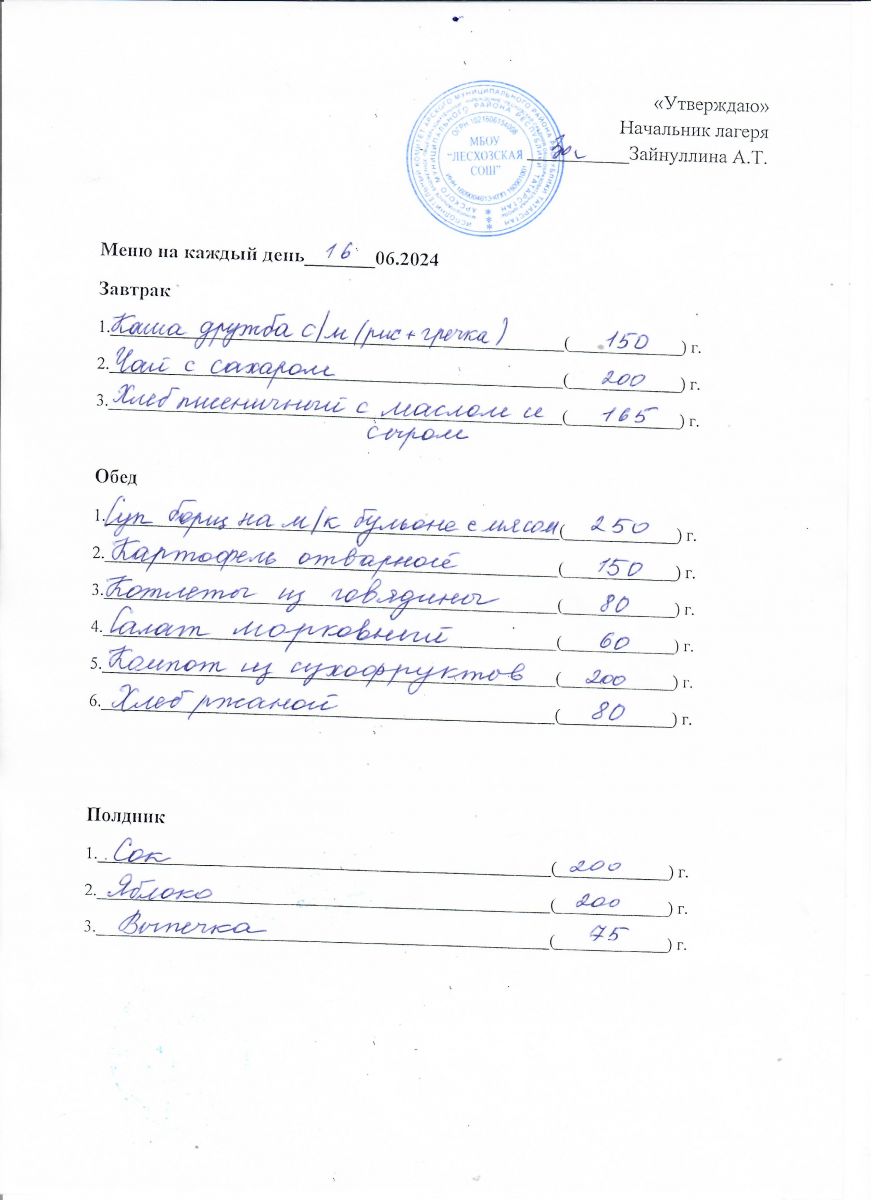 «Утверждаю»
Начальник лагеря
МБОУ
"ЛЕСХОЗСКАЯ
СОШ"
____________Зайнуллина А.Т.
Меню на каждый день 16 06.2024
Завтрак
1. Каша дружба с/м (рис+гречка) (150) г.
2. Чай с сахаром (200) г.
3. Хлеб пшеничный с маслом и (165) г.
сыром
Обед
1. Суп борщ на м/к бульоне с мясом (250) г.
2. Картофель отварной (150) г.
3. Котлеты из говядины (80) г.
4. Салат морковный (60) г.
5. Компот из сухофруктов (200) г.
6. Хлеб ржаной (80) г.
Полдник
1. Сок (200) г.
2. Яблоко (200) г.
3. Выпечка (75) г.